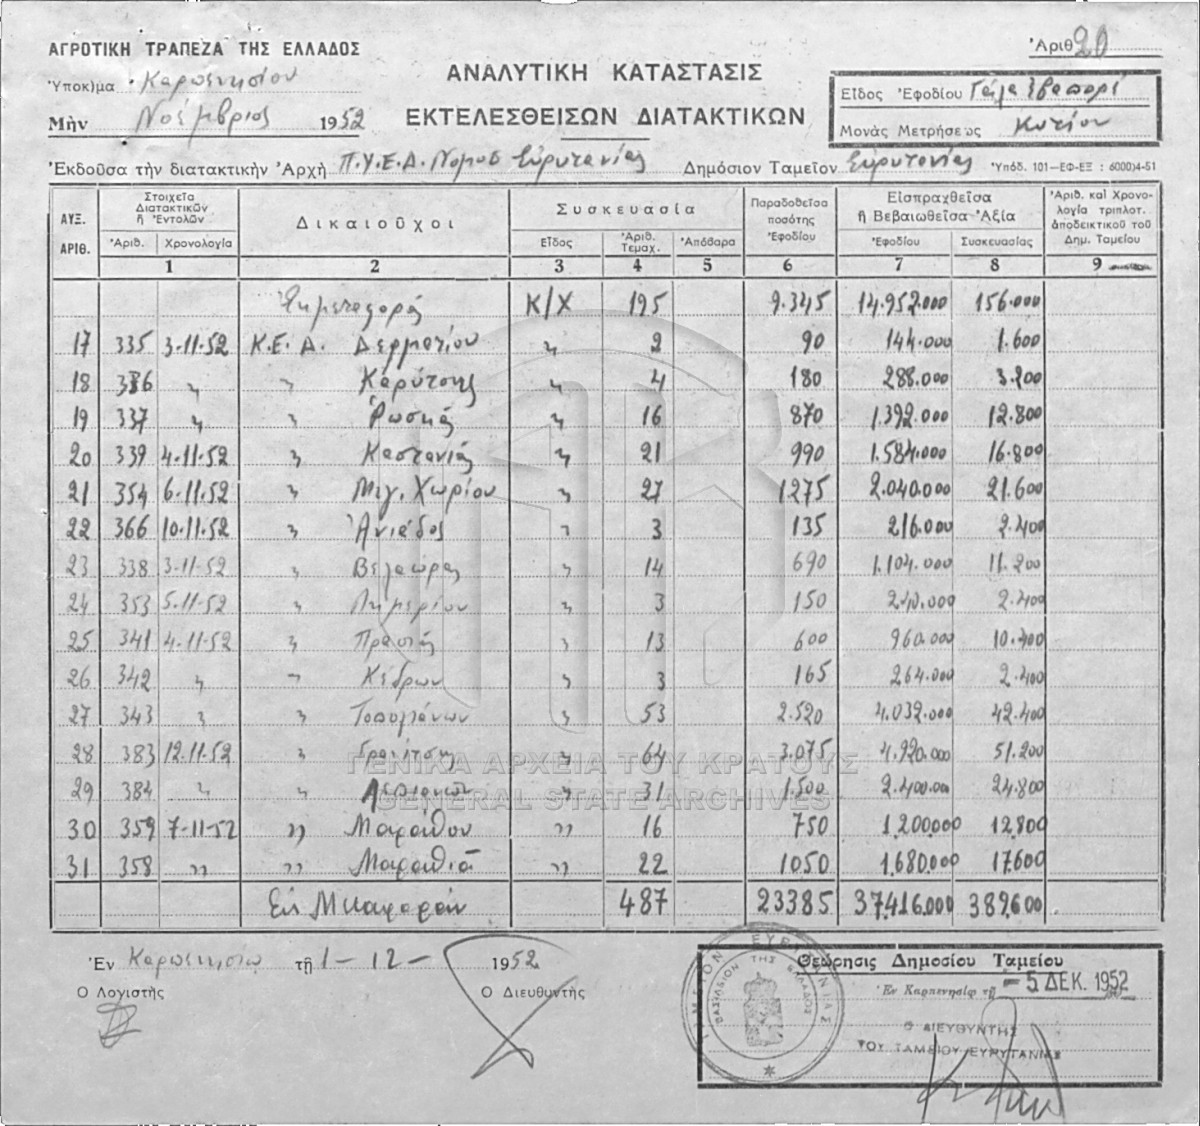 ΑΓΡΟΤΙΚΗ ΤΡΑΠΕΖΑ ΤΗΣ ΕΛΛΑΔΟΣ
Ἀριθ. 20
Ὑποκ)μα Καρπενησίου
ΑΝΑΛΥΤΙΚΗ ΚΑΤΑΣΤΑΣΙΣ
Εἶδος Ἐφοδίου Γάλα Ἐβαπορέ
Μὴν Νοέμβριος 1952
ΕΚΤΕΛΕΣΘΕΙΣΩΝ ΔΙΑΤΑΚΤΙΚΩΝ
Μονὰς Μετρήσεως Κυτίον
Ἐκδοῦσα τὴν διατακτικὴν Ἀρχὴ Π.Υ.Ε.Δ. Νομοῦ Εὐρυτανίας Δημόσιον Ταμεῖον Εὐρυτανίας Ὑπόδ. 101—ΕΦ—ΕΞ : 6000)4-51
ΑΥΞ. ΑΡΙΘ. Στοιχεῖα Διατακτικῶν ἢ Ἐντολῶν Δικαιοῦχοι Συσκευασία Παραδοθεῖσα ποσότης Ἐφοδίου Εἰσπραχθεῖσα ἢ Βεβαιωθεῖσα Ἀξία Ἀριθ. καὶ Χρονολογία τριπλοτ. ἀποδεικτικοῦ τοῦ Δημ. Ταμείου
Ἀριθ. Χρονολογία Εἶδος Ἀριθ. Τεμαχ. Ἀπόβαρα Ἐφοδίου Συσκευασίας
1 2 3 4 5 6 7 8 9
Ἐκ μεταφορᾶς Κ/Χ 195 9.345 14.952.000 156.000
17 335 3-11-52 Κ.Ε.Δ. Δερματίου 〃 2 90 144.000 1.600
18 336 〃 〃 Καρύτσης 〃 4 180 288.000 3.200
19 337 〃 〃 Ῥωσκᾶς 16 870 1.392.000 12.800
20 339 4-11-52 〃 Καστανιᾶς 〃 21 990 1.584.000 16.800
21 354 6-11-52 〃 Μεγ. Χωρίου 〃 27 1275 2.040.000 21.600
22 366 10-11-52 〃 Ἀνιάδος 〃 3 135 216.000 2.400
23 338 3-11-52 〃 Βελαώρας 〃 14 690 1.104.000 11.200
24 353 5-11-52 〃 〃 3 150 240.000 2.400
25 341 4-11-52 〃 Πρασιᾶς 〃 13 600 960.000 10.400
26 342 〃 〃 Κέδρων 〃 3 165 264.000 2.400
27 343 〃 〃 Τοπολιάνων 〃 53 2.520 4.032.000 42.400
28 383 12-11-52 〃 Γρανίτσης 〃 64 3.075 4.920.000 51.200
29 384 〃 〃 〃 31 1.500 2.400.000 24.800
30 359 7-11-52 〃 Μαράθου 〃 16 750 1.200000 12.800
31 358 〃 〃 Μαραθιᾶ 〃 22 1050 1.680.000 17.600
Εἰς Μεταφοράν 487 23385 37.416.000 389.600
ΓΕΝΙΚΑ ΑΡΧΕΙΑ ΤΟΥ ΚΡΑΤΟΥΣ
GENERAL STATE ARCHIVES
Ἐν Καρπενησίῳ τῇ 1-12-1952
Ὁ Λογιστὴς
Ὁ Διευθυντὴς
Θεώρησις Δημοσίου Ταμείου
Ἐν Καρπενησίῳ τῇ - 5 ΔΕΚ. 1952
Ο ΔΙΕΥΘΥΝΤΗΣ
ΤΟΥ ΤΑΜΕΙΟΥ ΕΥΡΥΤΑΝΙΑΣ
ΒΑΣΙΛΕΙΟΝ ΤΗΣ ΕΛΛΑΔΟΣ